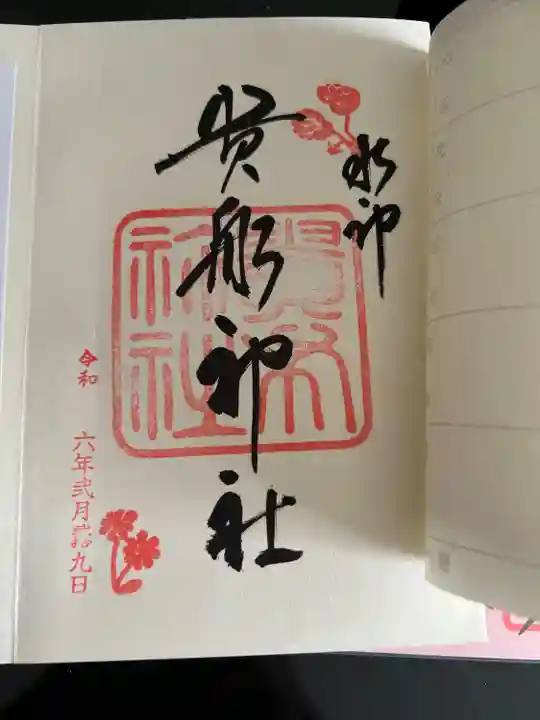 水神
貴船神社
貴布
祢社
令和 六年弐月弐拾九日